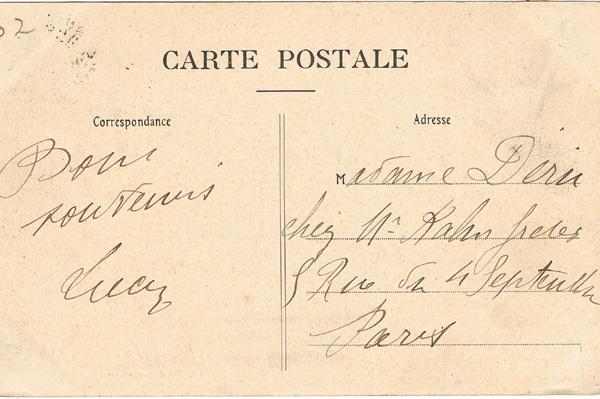 02
CARTE POSTALE
Correspondance
Bons
souvenirs
Lucy
Adresse
Madame
chez Mr Kahn frères
5 Rue du 4 Septembre
Paris